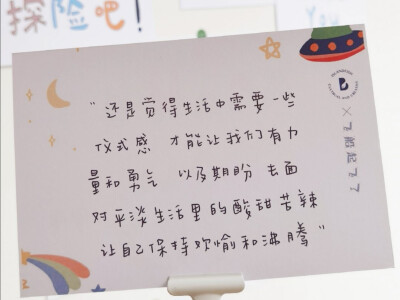 探险吧!
You
"还是觉得生活中需要一些
仪式感 才能让我们有力
量和勇气 以及期盼 去面
对平淡生活里的酸甜苦辣
让自己保持欢愉和沸腾"
B